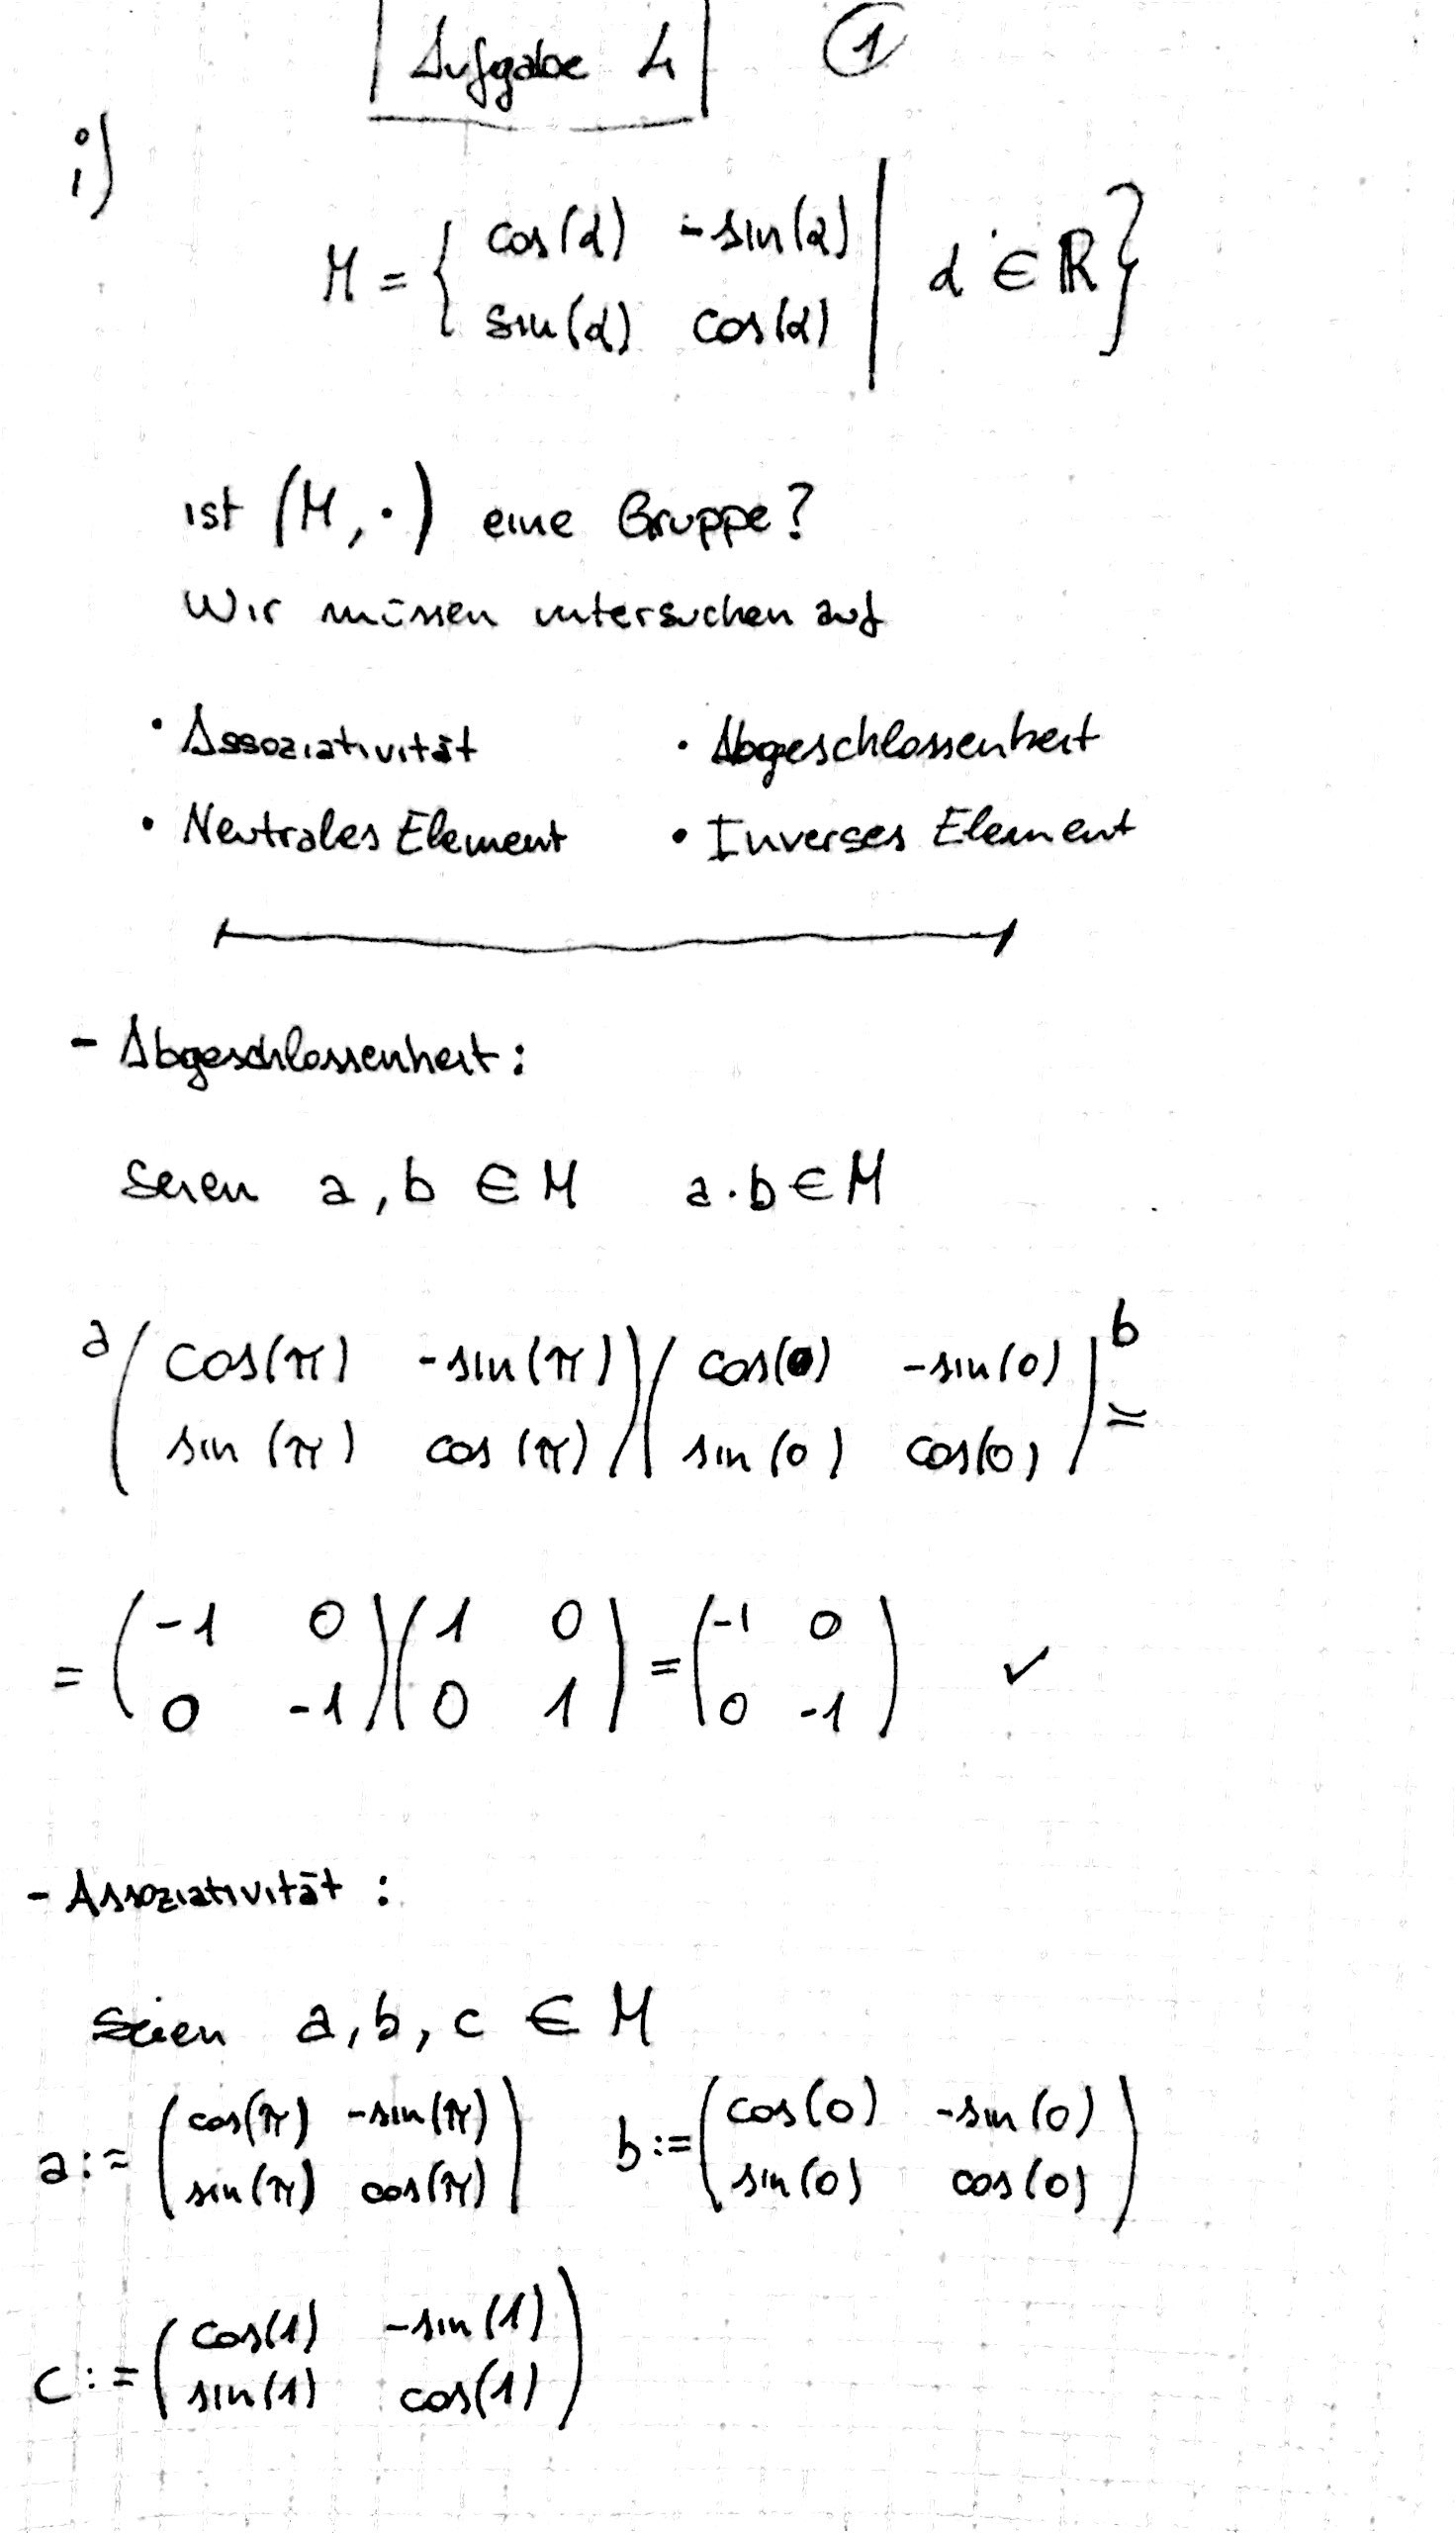 Aufgabe 4 ①
i)
M = { cos(α) -sin(α) | α ∈ ℝ }
sin(α) cos(α)
ist (M, ·) eine Gruppe?
Wir müssen untersuchen auf
• Assoziativität • Abgeschlossenheit
• Neutrales Element • Inverses Element
- Abgeschlossenheit:
Seien a, b ∈ M a·b ∈ M
a ( cos(π) -sin(π) ) ( cos(0) -sin(0) ) b =
sin(π) cos(π) sin(0) cos(0)
= ( -1 0 ) ( 1 0 ) = ( -1 0 ) ✓
0 -1 0 1 0 -1
- Assoziativität:
Seien a, b, c ∈ M
a := ( cos(π) -sin(π) ) b := ( cos(0) -sin(0) )
sin(π) cos(π) sin(0) cos(0)
c := ( cos(1) -sin(1) )
sin(1) cos(1)